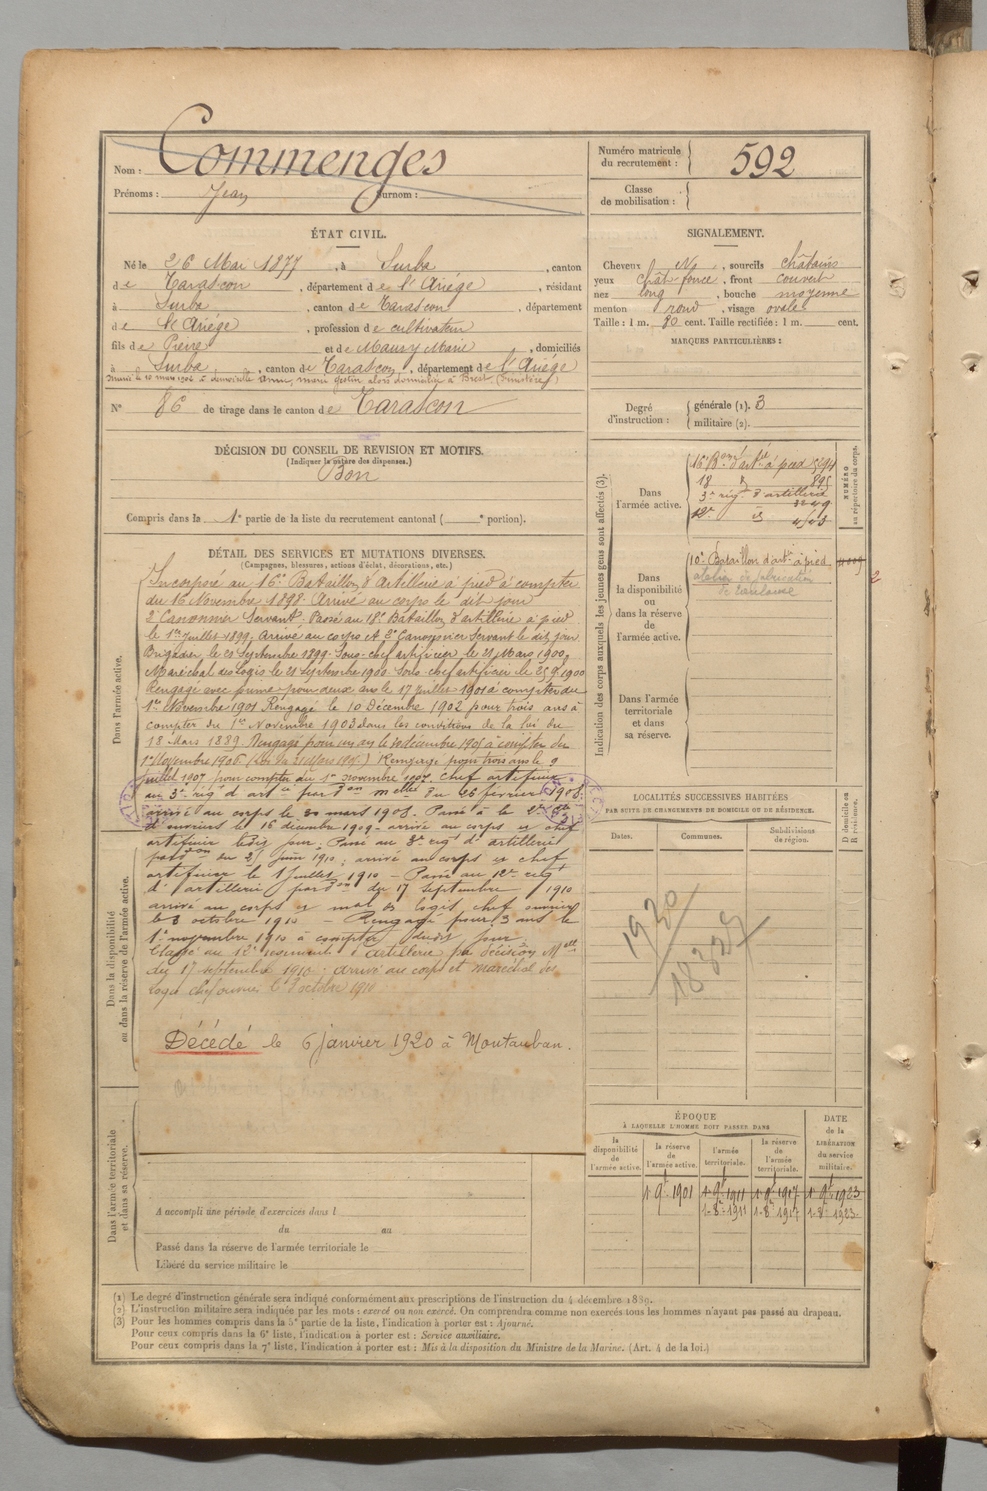 Nom : Commenges
Prénoms : Jean Surnom :
Numéro matricule du recrutement : 592
Classe de mobilisation :
ÉTAT CIVIL.
Né le 26 Mai 1877, à Surba, canton
de Tarascon, département de l'Ariége, résidant
à Surba, canton de Tarascon, département
de l'Ariége, profession de cultivateur
fils de Pierre et de Maury Marie, domiciliés
à Surba, canton de Tarascon, département de l'Ariége
alors domiciliée à Brest (Finistère)
N° 86 de tirage dans le canton de Tarascon
SIGNALEMENT.
Cheveux No, sourcils châtains
yeux chât foncé, front couvert
nez long, bouche moyenne
menton rond, visage ovale
Taille : 1 m. 80 cent. Taille rectifiée : 1 m. cent.
MARQUES PARTICULIÈRES :
Degré d'instruction : générale (1). 3
militaire (2).
DÉCISION DU CONSEIL DE REVISION ET MOTIFS.
(Indiquer la nature des dispenses.)
Bon
Compris dans la 1e partie de la liste du recrutement cantonal ( e portion).
DÉTAIL DES SERVICES ET MUTATIONS DIVERSES.
(Campagnes, blessures, actions d'éclat, décorations, etc.)
Dans l'armée active.
Incorporé au 16e Bataillon d'artillerie à pied à compter
du 16 Novembre 1898. Arrivé au corps le dit jour
2e Canonnier Servant. Passé au 18e Bataillon d'artillerie à pied
le 1er Juillet 1899. Arrivé au corps et 2e Canonnier Servant le dit jour
Brigadier le 20 Septembre 1899. Sous-chef artificier le 21 Mars 1900.
Maréchal des Logis le 21 Septembre 1900. Sous-chef artificier le 25 9bre 1900
Rengagé avec prime pour deux ans le 17 Juillet 1901 à compter du
1er Novembre 1901. Rengagé le 10 Décembre 1902 pour trois ans à
compter du 1er Novembre 1903 dans les conditions de la loi du
18 Mars 1889. Rengagé pour un an le 30 décembre 1905 à compter du
1er Novembre 1906. Rengagé pour trois ans le 9
juillet 1907 pour compter du 1er novembre 1907. Chef artificier
au 3e rég d'artie par don melle du 26 février 1908.
arrivé au corps le 20 mars 1908. Passé à la 2e Cie
d'ouvriers le 16 décembre 1909 - arrivé au corps et chef
artificier ledit jour. Passé au 3e rég d'artillerie
par don du 25 juin 1910; arrivé au corps et chef
artificier le 1 Juillet 1910 - Passé au 12e régt
d'artillerie par don du 17 septembre 1910
arrivé au corps et mal des logis chef ouvrier
le 8 octobre 1910 - Rengagé pour 3 ans le
1er novembre 1910 à compter dudit jour.
Classé au 12e régiment d'artillerie par décision Melle
du 17 septembre 1910; arrivé au corps et maréchal des
logis chef ouvrier le 8 octobre 1910
Dans la disponibilité ou dans la réserve de l'armée active.
Décédé le 6 janvier 1920 à Montauban.
Dans l'armée territoriale et dans sa réserve.
A accompli une période d'exercices dans l
du au
Passé dans la réserve de l'armée territoriale le
Libéré du service militaire le
Indication des corps auxquels les jeunes gens sont affectés (3).
NUMÉRO au répertoire du corps.
Dans l'armée active.
16e Bon d'artie à pied 5594
18 d 895
3e rég. d'artillerie
12e id
Dans la disponibilité ou dans la réserve de l'armée active.
10e Bataillon d'artie à pied
atelier de fabrication
de Toulouse
2
Dans l'armée territoriale et dans sa réserve.
LOCALITÉS SUCCESSIVES HABITÉES
PAR SUITE DE CHANGEMENTS DE DOMICILE OU DE RÉSIDENCE.
Dates. Communes. Subdivisions de région. D domicile ou R résidence.
1920
18329
ÉPOQUE
À LAQUELLE L'HOMME DOIT PASSER DANS
la disponibilité de l'armée active. la réserve de l'armée active. l'armée territoriale. la réserve de l'armée territoriale. DATE de la LIBÉRATION du service militaire.
1 9bre 1901 1 9bre 1911 1 9bre 1917 1 9bre 1923
1-8bre 1911 1-8bre 1917 1-8bre 1923
(1) Le degré d'instruction générale sera indiqué conformément aux prescriptions de l'instruction du 4 décembre 1889.
(2) L'instruction militaire sera indiquée par les mots : exercé ou non exercé. On comprendra comme non exercés tous les hommes n'ayant pas passé au drapeau.
(3) Pour les hommes compris dans la 5e partie de la liste, l'indication à porter est : Ajourné.
Pour ceux compris dans la 6e liste, l'indication à porter est : Service auxiliaire.
Pour ceux compris dans la 7e liste, l'indication à porter est : Mis à la disposition du Ministre de la Marine. (Art. 4 de la loi.)